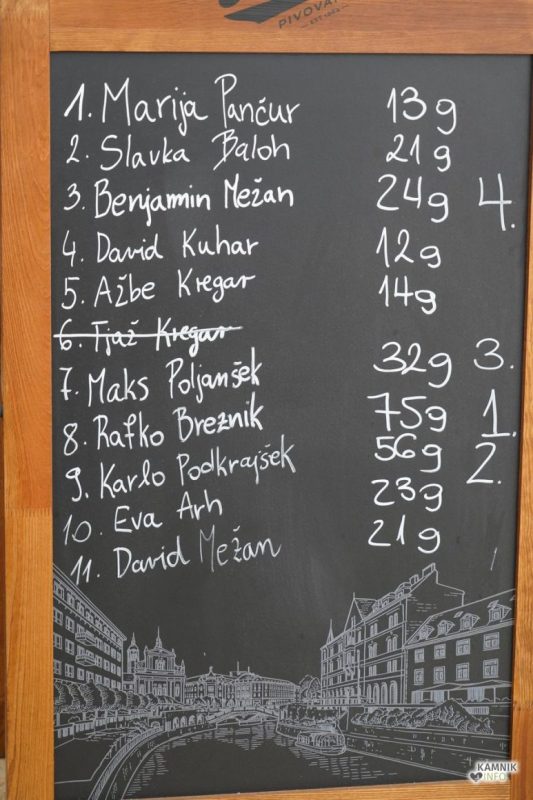 PIVOVAR
EST 1864
1. Marija Pančur 13g
2. Slavka Baloh 21g
3. Benjamin Mežan 24g 4.
4. David Kuhar 12g
5. Ažbe Kregar 14g
6. Tjaž Kregar
7. Maks Poljanšek 32g 3.
8. Rafko Breznik 75g 1.
9. Karlo Podkrajšek 56g 2.
10. Eva Arh 23g
11. David Mežan 21g
KAMNIK
INFO